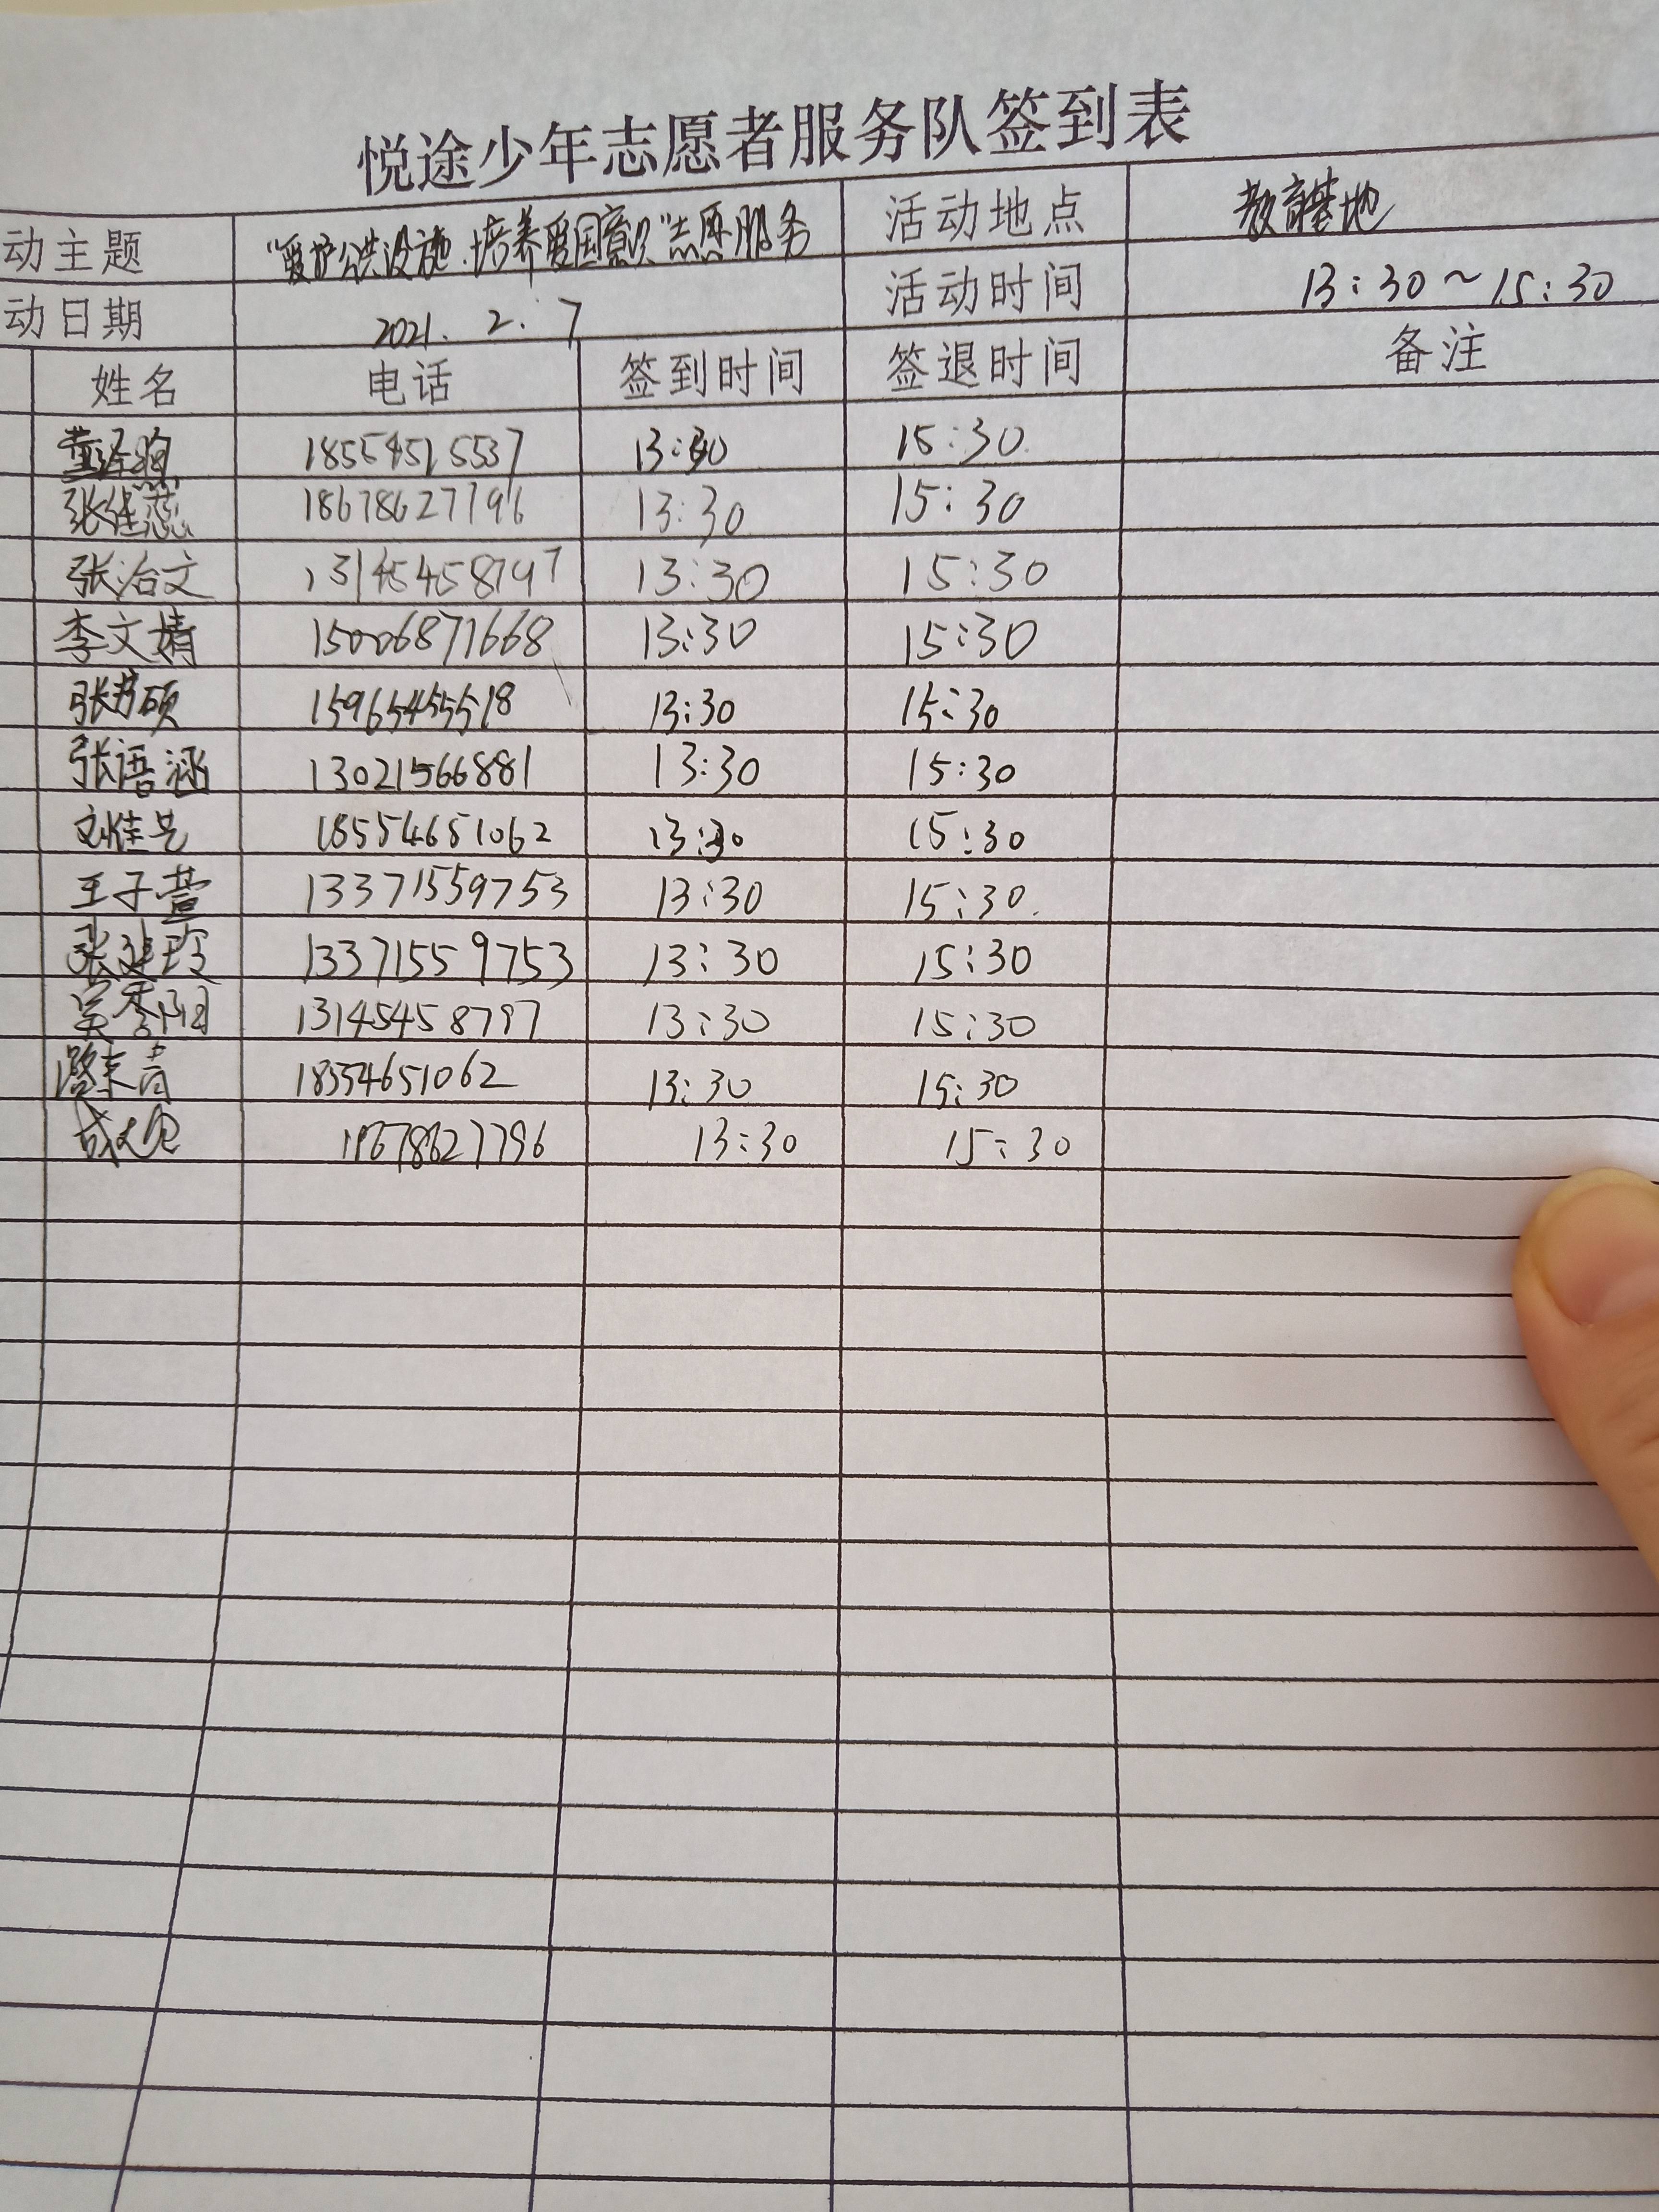 悦途少年志愿者服务队签到表
动主题 "爱护公共设施.培养爱国意识"志愿服务 活动地点 教育基地
动日期 2021. 2. 7 活动时间 13:30~15:30
姓名 电话 签到时间 签退时间 备注
董泽 18554515537 13:30 15:30
张佳蕊 18678627796 13:30 15:30
张治文 13145458797 13:30 15:30
李文婧 15006871668 13:30 15:30
张芳硕 15965455518 13:30 15:30
张语涵 13021566881 13:30 15:30
刘佳 18554651062 13:30 15:30
王子萱 13371559753 13:30 15:30
张建玲 13371559753 13:30 15:30
吴季阳 13145458797 13:30 15:30
18554651062 13:30 15:30
18678627796 13:30 15:30